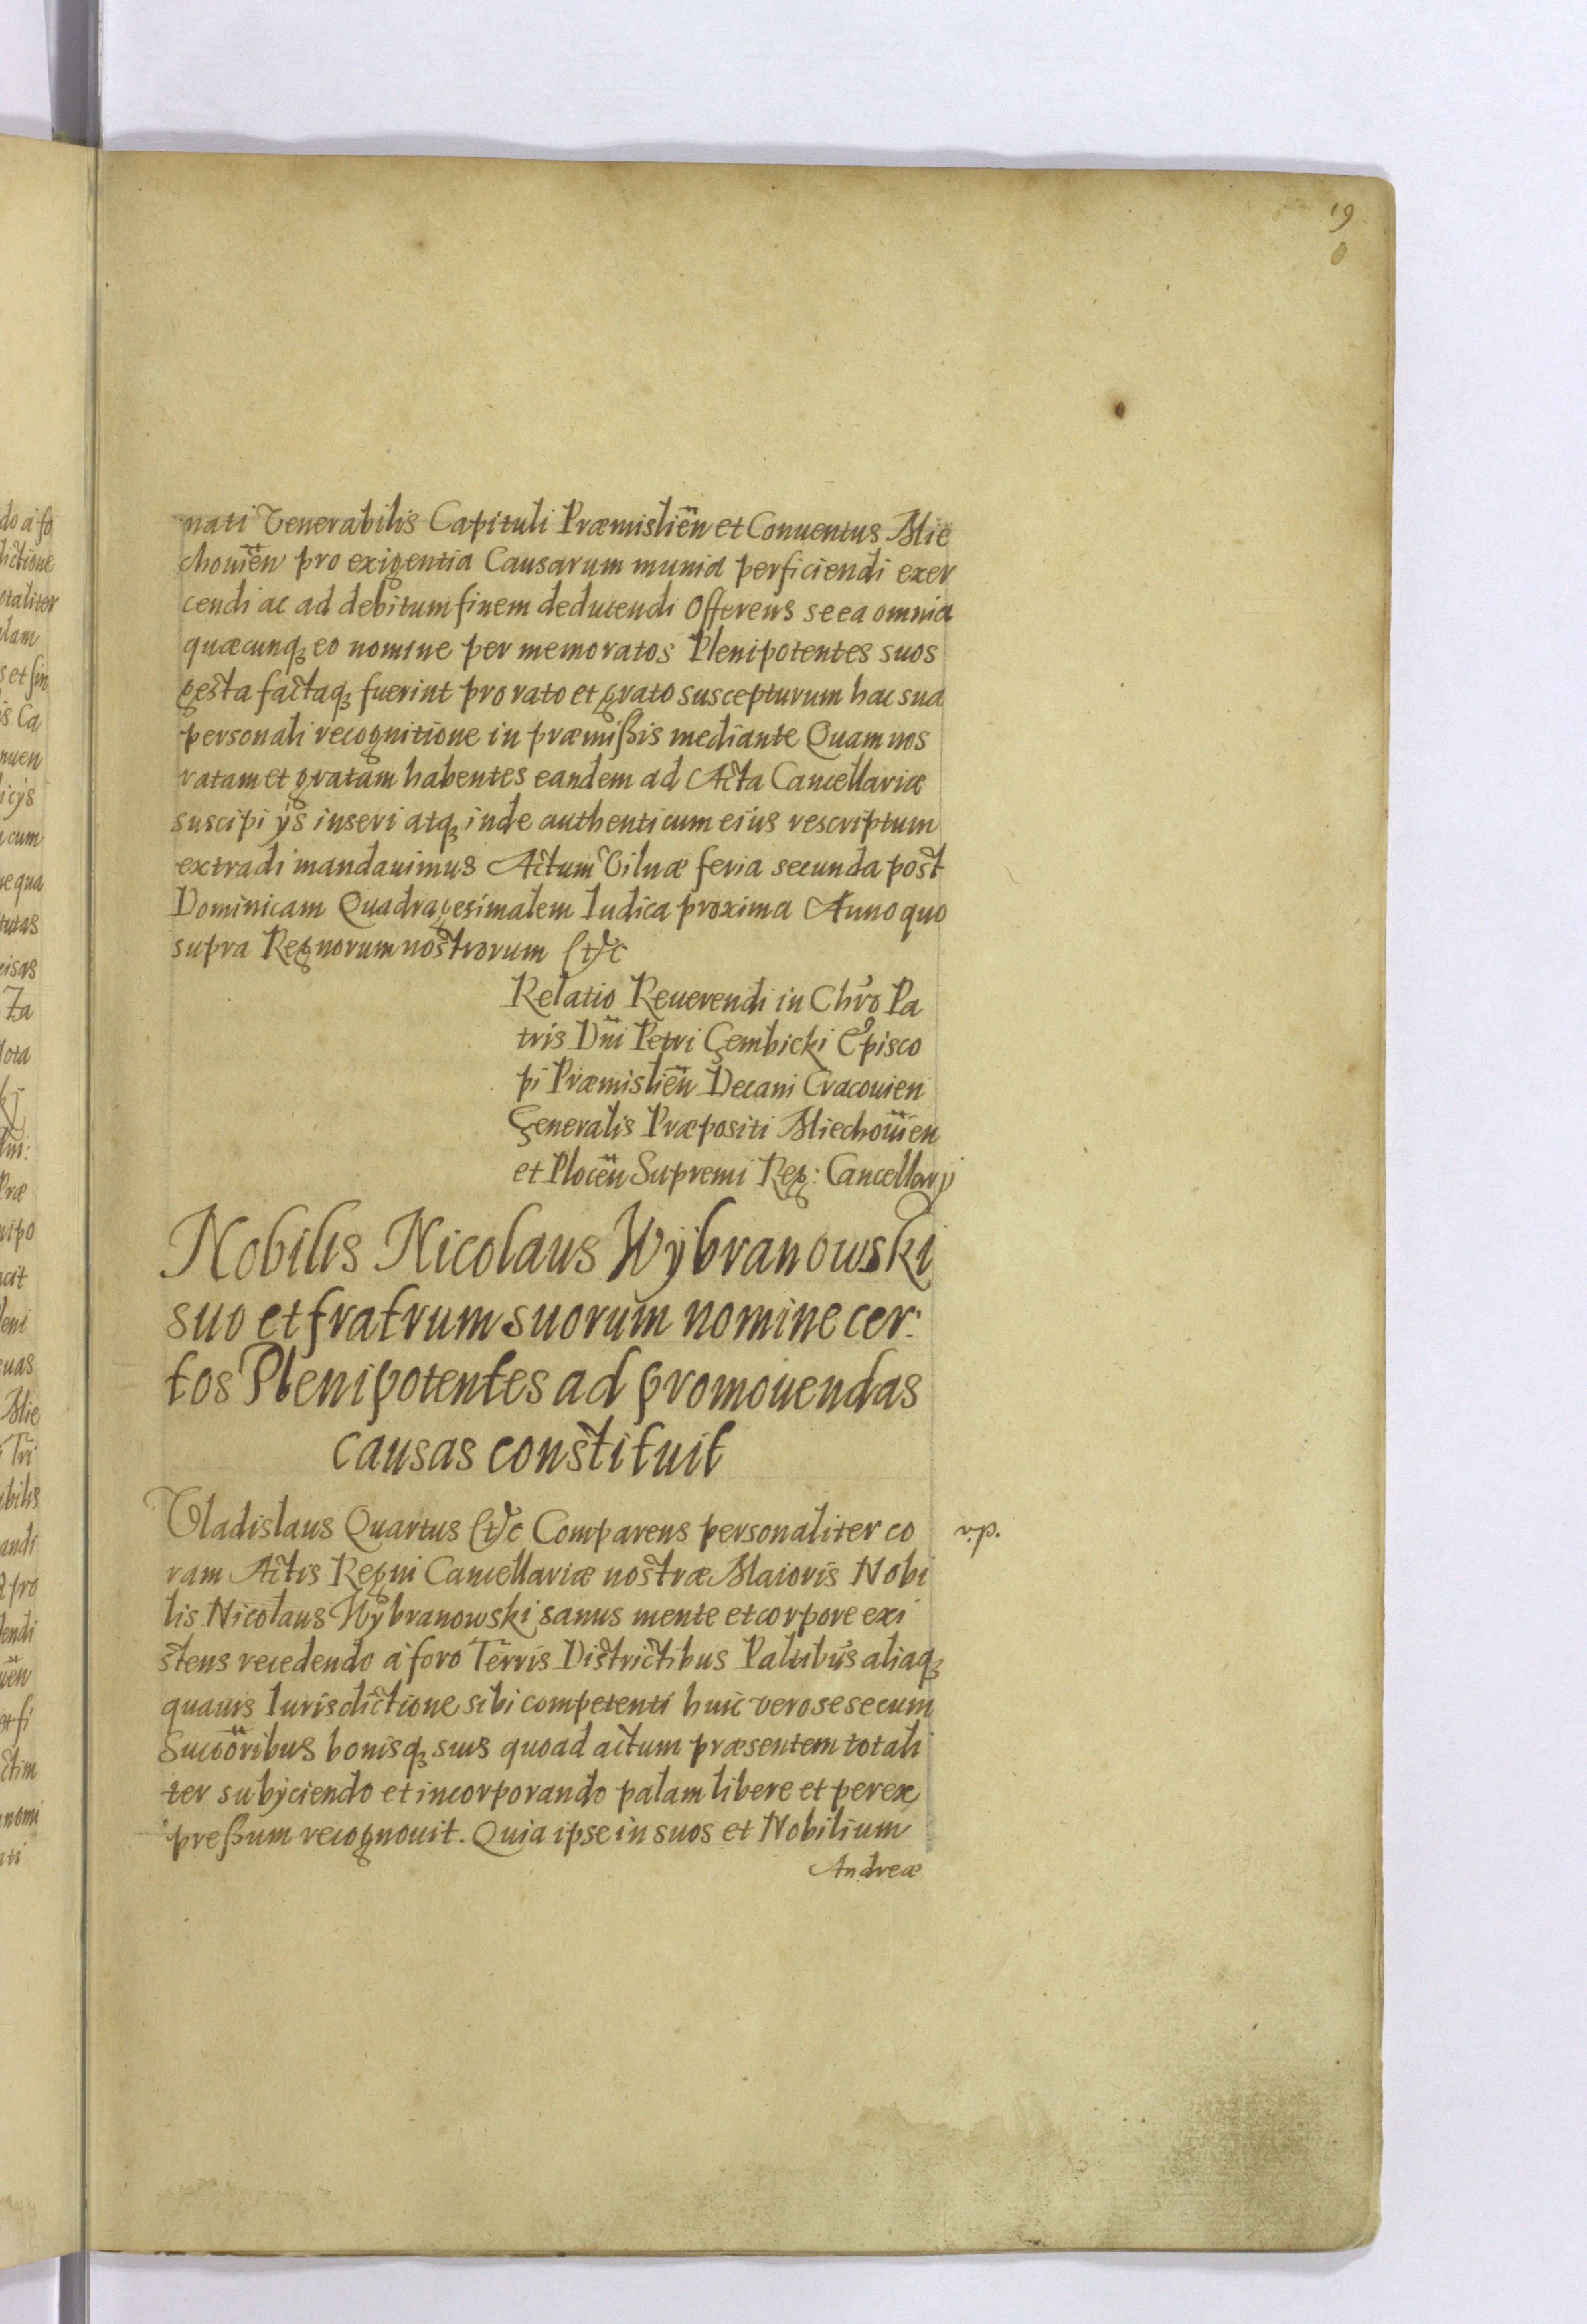 19
nati Venerabilis Capituli Præmislien̄ et Conuentus Mie
chouien̄ pro exigentia Causarum munia perficiendi exer
cendi ac ad debitum finem deducendi Offerens se ea omnia
quæcunq; eo nomine per memoratos Plenipotentes suos
gesta factaq; fuerint pro rato et grato suscepturum hac sua
personali recognitione in præmißis mediante Quam nos
ratam et gratam habentes eandem ad Acta Cancellariæ
suscipi ijs inseri atq; inde authenticum eius rescriptum
extradi mandauimus Actum Vilnæ feria secunda post
Dominicam Quadragesimalem Iudica proxima Anno quo
supra Regnorum nostrorum etc
Relatio Reuerendi in Chr̄o Pa
tris Dn̄i Petri Gembicki Episco
pi Præmislien̄ Decani Cracouien
Generalis Præpositi Miechouien̄
et Plocen̄ Supremi Reg: Cancellarij
Nobilis Nicolaus Wÿbranowski
suo et fratrum suorum nomine cer:
tos Plenipotentes ad promouendas
causas constituit
Vladislaus Quartus etc Comparens personaliter co
v.p.
ram Actis Regni Cancellariæ nostræ Maioris Nobi
lis Nicolaus Wÿbranowski sanus mente et corpore exi
stens recedendo à foro Terris Districtibus Paltibus aliaq;
quauis Iurisdictione sibi competenti huic vero se se cum
Succōribus bonisq; suis quoad actum præsentem totali
ter subijciendo et incorporando palam libere et per ex
preßum recognouit. Quia ipse in suos et Nobilium
Andreæ